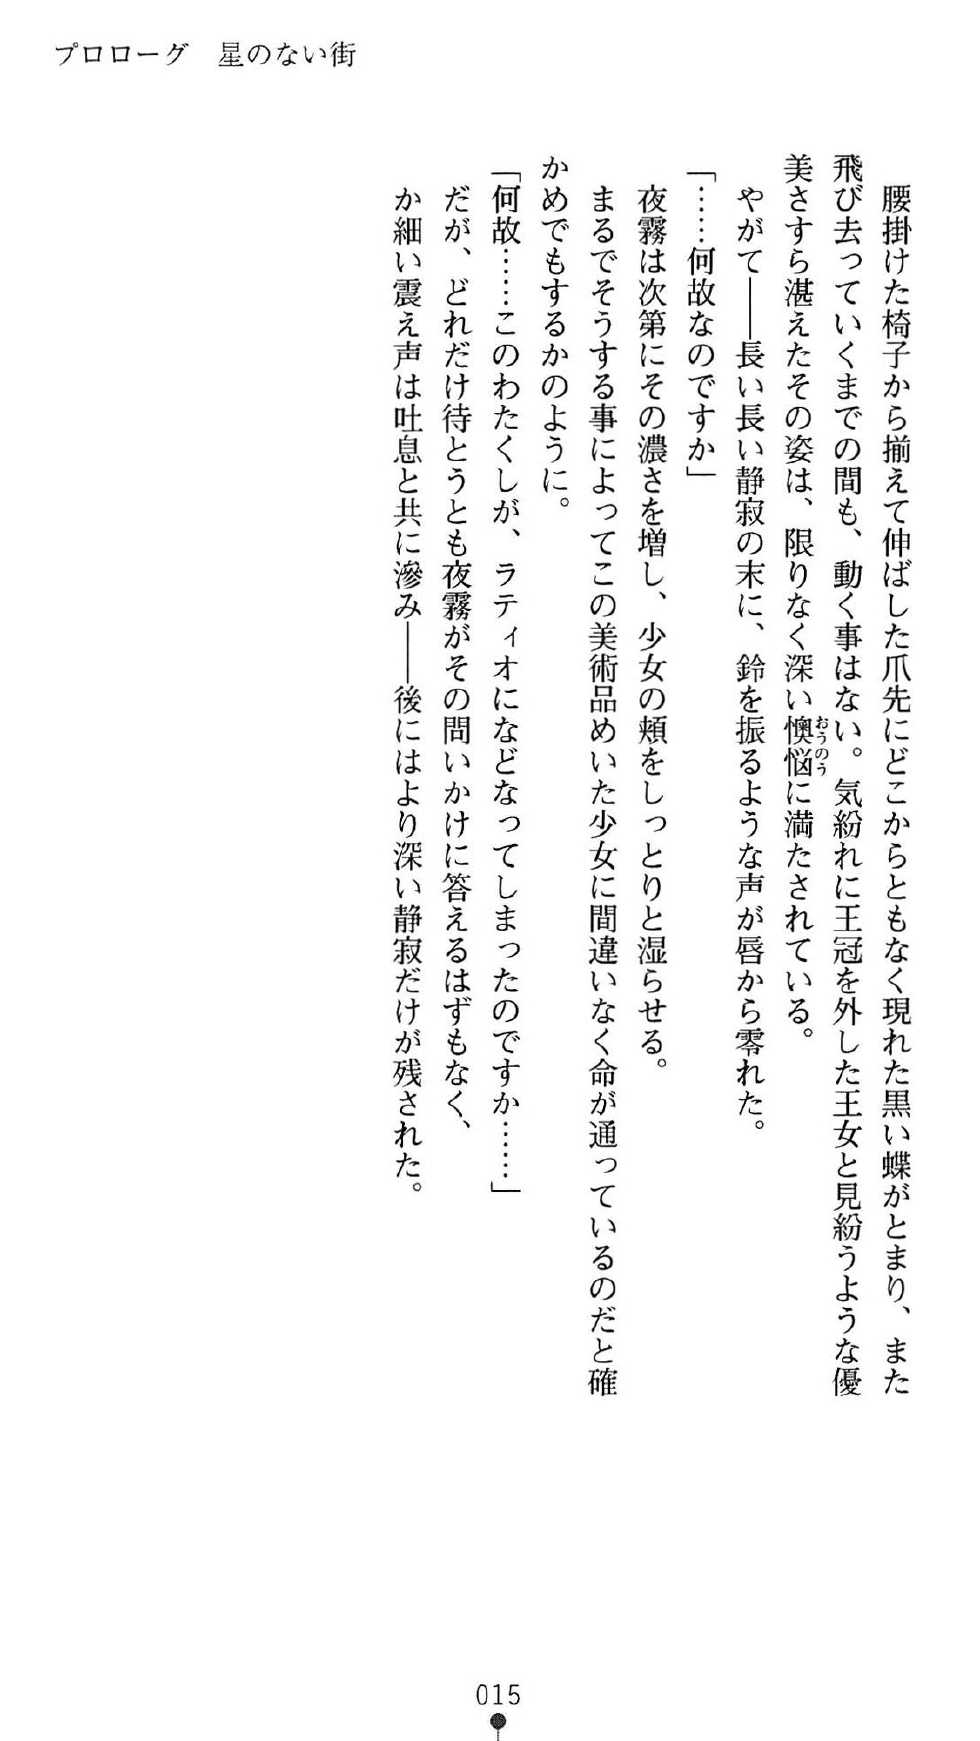 プロローグ　星のない街
　腰掛けた椅子から揃えて伸ばした爪先にどこからともなく現れた黒い蝶がとまり、また
飛び去っていくまでの間も、動く事はない。気紛れに王冠を外した王女と見紛うような優
美さすら湛えたその姿は、限りなく深い懊悩に満たされている。
おうのう
　やがて――長い長い静寂の末に、鈴を振るような声が唇から零れた。
「……何故なのですか」
　夜霧は次第にその濃さを増し、少女の頬をしっとりと湿らせる。
　まるでそうする事によってこの美術品めいた少女に間違いなく命が通っているのだと確
かめでもするかのように。
「何故……このわたくしが、ラティオになどなってしまったのですか……」
　だが、どれだけ待とうとも夜霧がその問いかけに答えるはずもなく、
　か細い震え声は吐息と共に滲み――後にはより深い静寂だけが残された。
015